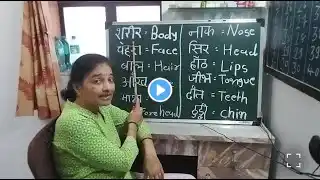 शरीर = Body
चेहरा = Face
बाल = Hair
आँख
माथा
Forehead
नाक = Nose
सिर = Head
होंठ = Lips
जीभ = Tongue
दाँत = Teeth
ठुड्डी = chin